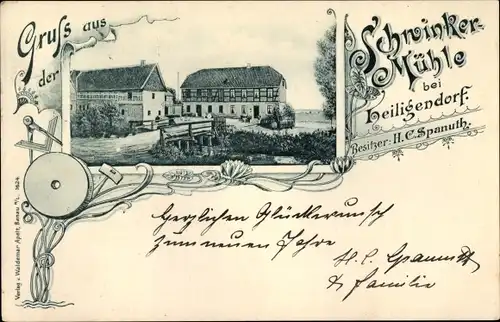 Gruß aus
der
Schwinker-
Mühle
bei
Heiligendorf.
Besitzer: H. C. Spanuth.
Herzlichen Glückwunsch
zum neuen Jahre
H. C. Spanuth
& Familie
Verlag v. Waldemar Apelt,